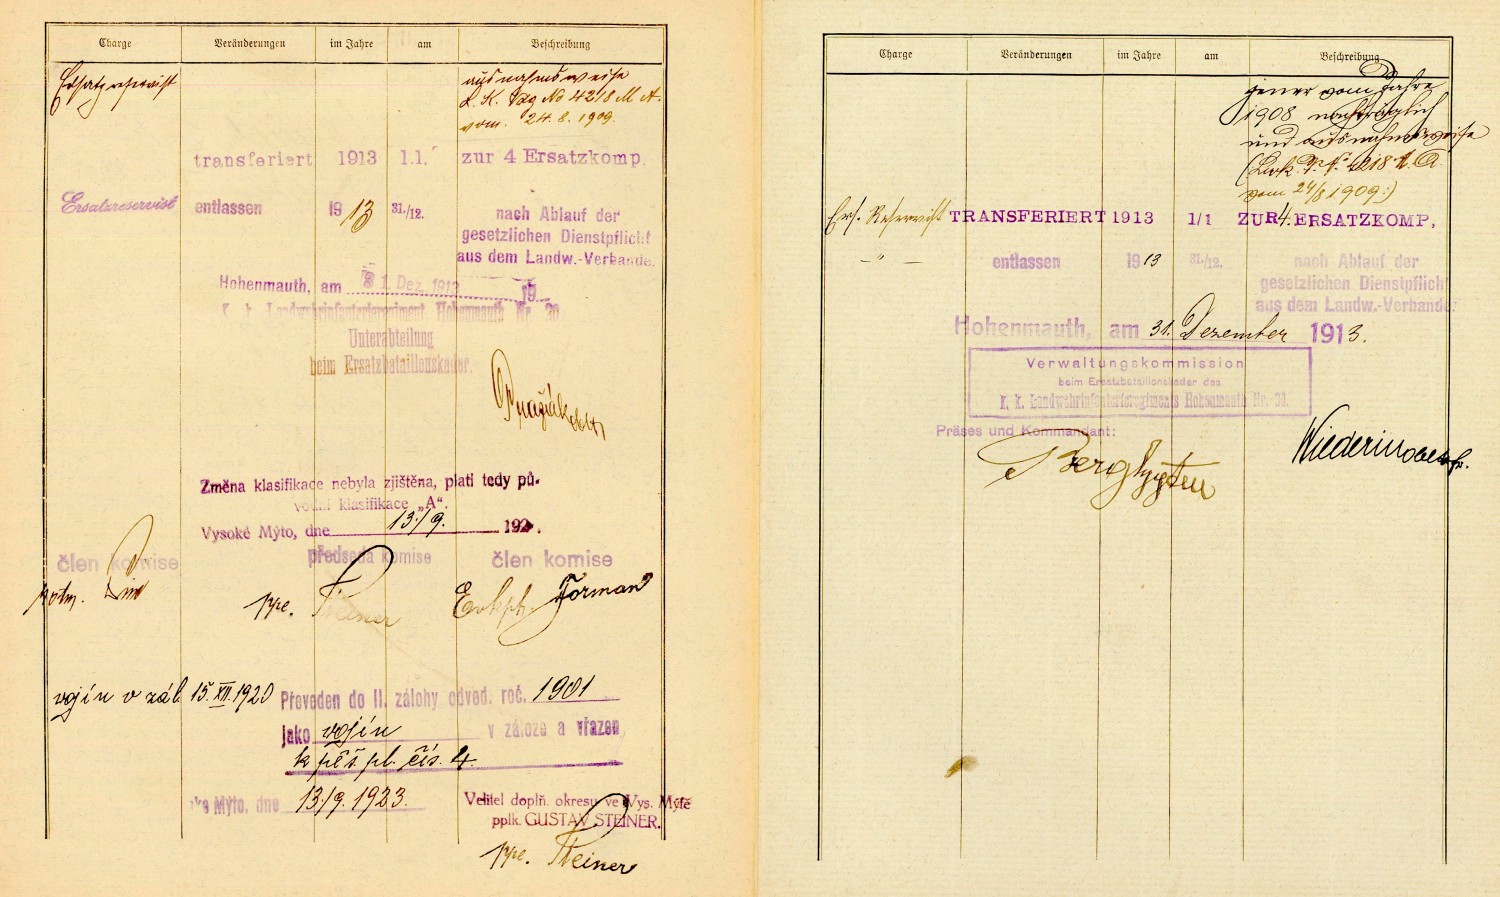 Charge Veränderungen im Jahre am Beschreibung
Ersatzreservist
ausnahmsweise
L. K. No 4218 M A.
vom. 24. 8. 1909.
transferiert 1913 1.1. zur 4 Ersatzkomp.
Ersatzreservist entlassen 1913 31./12. nach Ablauf der
gesetzlichen Dienstpflicht
aus dem Landw.-Verbande.
Hohenmauth, am 31. Dez. 1913 19
k. k. Landwehrinfanterieregiment Hohenmauth Nr. 30
Unterabteilung
beim Ersatzbataillonskader.
Změna klasifikace nebyla zjištěna, platí tedy pů-
vodní klasifikace „A“.
Vysoké Mýto, dne 13./9. 192
člen komise předseda komise člen komise
ppe. Steiner Forman
vojín v zál. 15. XII. 1920 Převeden do II. zálohy odvod. roč. 1901
jako vojín v záloze a vřazen
k pěš. pl. čís. 4.
Mýto, dne 13./9. 1923. Velitel doplň. okresu ve Vys. Mýtě
pplk. GUSTAV STEINER.
ppe. Steiner
Charge Veränderungen im Jahre am Beschreibung
jener vom Jahre
1908 nachträglich
und ausnahmsweise
4218
vom 24/8 1909:)
Ers. Reservist TRANSFERIERT 1913 1/1 ZUR 4. ERSATZKOMP.
– " – entlassen 1913 31./12. nach Ablauf der
gesetzlichen Dienstpflicht
aus dem Landw.-Verbande.
Hohenmauth, am 31. Dezember 1913.
Verwaltungskommission
beim Ersatzbataillonskader des
k. k. Landwehrinfanterieregiments Hohenmauth Nr. 30.
Präses und Kommandant: